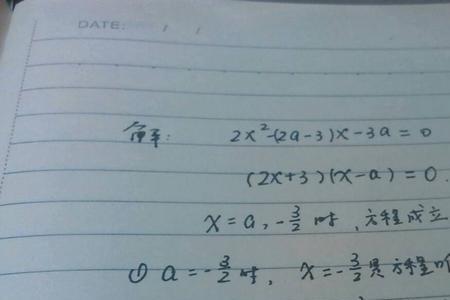 DATE: / /
解: 2x²-(2a-3)x-3a=0
(2x+3)(x-a)=0.
x=a,-3/2 时,方程成立
① a=-3/2时, x=-3/2是方程